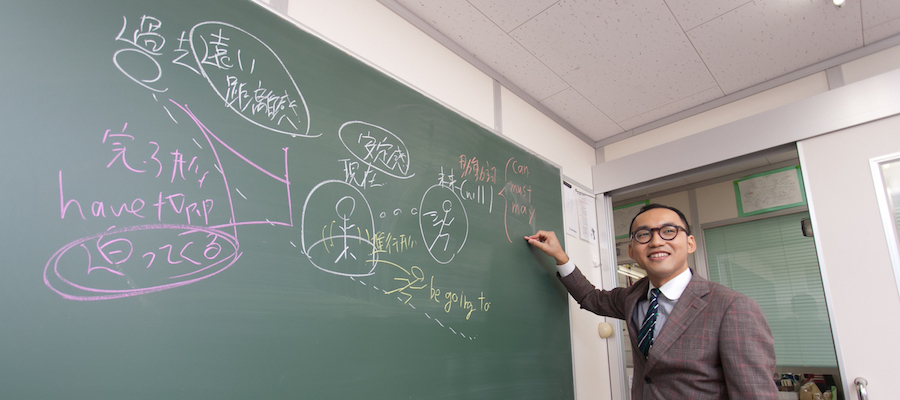 過去
遠い
距離感
完了形
have+p.p
迫ってくる
安定感
現在
進行形
be going to
未来
(will)
助動詞
can
must
may